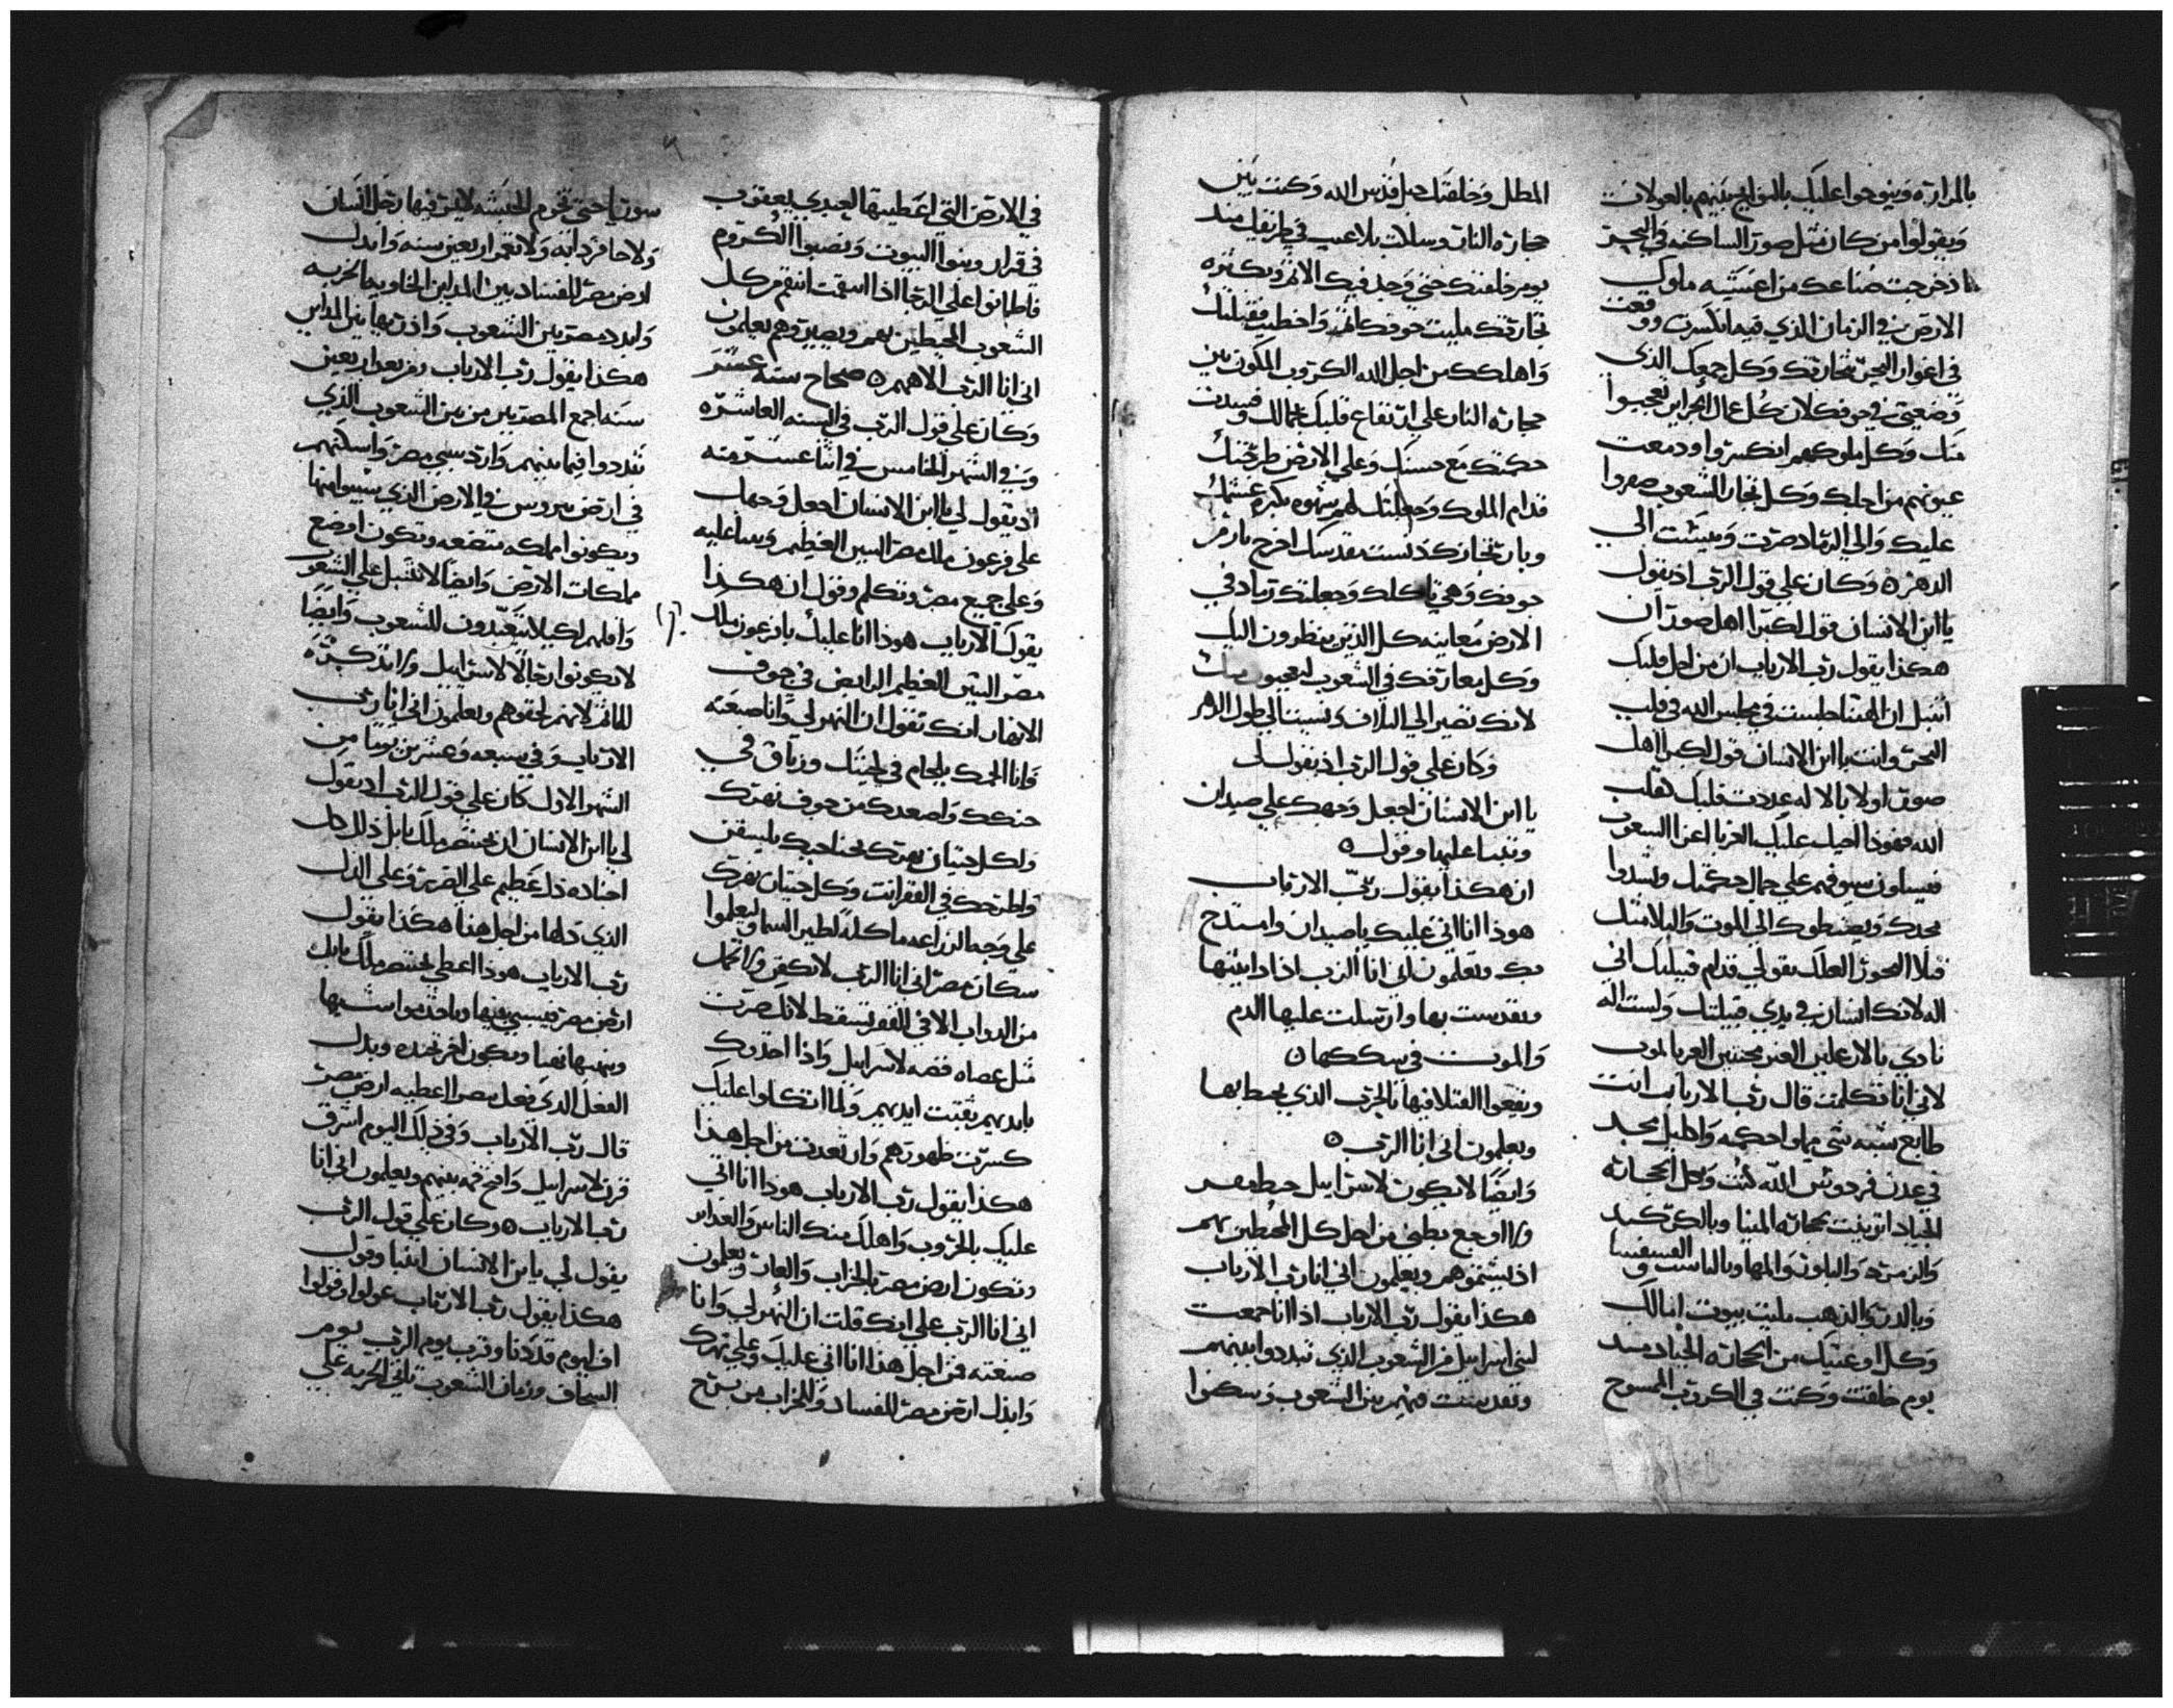 بالمراره وينوحوا عليك بالنوايح بنيهم بالعولات
ويقولوا من كان مثل صور الساكته في البحر
اذ خرجت صناعك من اعشيه ملوك
الارض في الزمان الذي فيه انكسرت ووقعت
في اغوار البحر تجارتك وكل جمعك الذي
وضعتي في جوفك لان كل عمال الجزاير تعجبوا
منك وكل ملوكهم انكسروا ودمعت
عيونهم من اجلك وكل تجار الشعوب صفروا
عليك والى الرماد صرت وميشت الي
الدهر ه وكان علي قول الرب اذ يقول
يا ابن الانسان قول لكبرا اهل صور ان
هكذا يقول رب الارباب ان من اجل قلبك
انتبل ان الهتنا جلست في مجلس الله في قلب
البحر وانت يا ابن الانسان قول لكبرا اهل
صور اولا بالاله عددت قلبك كقلب
الله فهوذا اجيب عليك الغربا اعزا الشعوب
فيسلون سيوفهم علي جمال حكمتك ويشدوا
مجدك ويهبطوك الي الموت والبلا مثل
قتلا البحور العلك تقولي قدام قتيلك اني
اله لانك انسان في يدي قبيلتك ولست اله
نادي بالارعلين الغير مختنين الغربا لموت
لاني انا تكلمت قال رب الارباب انت
طابع شبه شي مملوا حكمه واكليل مجد
في عدن فردوس الله كنت وبكل الحجاره
الجياد اتزينت بحجاره المينا وبالكركند
والزمرد والبلور والمها وبالماس الفسفسا و
وبالدر والذهب مليت بيوت امالك
وكل اوعيتك من الحجاره الجياد منذ
يوم خلقت وكنت في الكروب الممسوح
المطلل وخلقتك جبل قدس الله وكنت بين
حجاره النار وسلكت بلا عيب في طريقك منذ
يوم خلقتك حتي وجد فيك الاثم وبكثره
تجارتك مليت جوفك اثم واخطيت فقبلتك
واهلكك من اجل الله الكروب المكون بين
حجاره النار علي ارتفاع قلبك بجمالك وفسدت
حكمتك مع حسنك وعلي الارض طرحتك
قدام الملوك وجعلتك لهم شهوه بكبره غشك
وبان تجارتك دنست مقدسك اخرج نار من
جوفك وهي تاكلك وجعلتك رماد في
الارض معاينه كل الذين ينظرون اليك
وكل معارفك في الشعوب لتعجبون منك
لانك تصير الي التلاف ولست الي طول الدهر
وكان علي قول الرب اذ يقول لي
يا ابن الانسان اجعل وجهك علي صيدان
وتنبا عليها وقول ه
ان هكذا يقول رب الارباب
هوذا انا اني عليك يا صيدان وامتدح
بك وتعلمون اني انا الرب اذا دانيتها
وتقدست بها وارسلت عليها الدم
والموت في سككها ه
ويقعوا القتلا فيها بالحرب الذي يحيط بها
ويعلمون اني انا الرب ه
وايضا لا يكون لاسراييل حيط مر
ولا اوجع يطي من اجل كل المحيطين بهم
اذ يشتموهم ويعلمون اني انا رب الارباب
هكذا يقول رب الارباب اذا انا جمعت
لبني اسراييل من الشعوب الذي تبددوا بينهم
وتقدست فيهم بين الشعوب وسكنوا
في الارض التي اعطيتها لعبدي يعقوب
في قرار وبنوا البيوت ونصبوا الكروم
فاطمانوا علي الرجا اذا اسقمت انتقم من كل
الشعوب المحيطين بهم ويصير وهم يعلمون
اني انا الرب الاههم ه صحاح سته عشر
وكان علي قول الرب في السنه العاشره
وفي الشهر الخامس في اثنا عشر منه
اذ يقول لي يا ابن الانسان اجعل وجهك
علي فرعون ملك مصر التنين العظيم وتنبا عليه
وعلي جميع مصر وتكلم وقول ان هكذا
يقول رب الارباب هوذا انا عليك يا فرعون ملك
مصر التنين العظيم الرابض في جوف
الانهار انك تقول ان النهر لي وانا صنعته
وانا الجمك بلجام في لحيتك وزناق في
حنكك واصعدك من جوف نهرك
ولكل حيتان نهرك بجناحيك يليسقن
واطرحك في القفر انت وكل حيتان نهرك
علي وجه الزراعه ماكله لطير السما وليعلموا
سكان مصر اني انا الرب لا تكفن ولا تحمل
من الدواب الا في القفر تسقط لانك صرت
مثل عصاه قصه لاسراييل واذا اخذوك
بايديهم تفتت ايديهم ولما اتكلوا عليك
كسرت ظهورهم وارتعدت من اجل هذا
هكذا يقول رب الارباب هوذا انا اني
عليك بالحروب واهلك منك الناس والغداير
وتكون ارض مصر بالخراب والعار ويعلمون
اني انا الرب علي انك قلت ان النهر لي وانا
صنعته من اجل هذا انا اني عليك وعلي نهرك
وابذل ارض مصر للفساد وللخراب من برج
سوريا حتي تخوم الحبشه لا يمر فيها رجل انسان
ولا حافر دابه ولا تعمر اربعين سنه وابدل
ارض مصر للفساد بين المداين الخاويه الخربه
وابدد مصر بين الشعوب واذريها بين المداين
هكذا يقول رب الارباب ومن بعد اربعين
سنه اجمع المصريين من بين الشعوب الذي
تبددوا فيما بينهم وارد سبي مصر واسكنهم
في ارض بيروس في الارض الذي سبيوا منها
ويكونوا مملكه متضعه وتكون اوضع
مملكات الارض وايضا لا تقبل علي الشعوب
واقلهم لكيلا يتعبدون للشعوب وايضا
لا يكونوا رجالا لاسراييل ولا تذكر كثره
للماثم لانهم لحقوهم ويعلمون اني انا رب
الارباب وفي سبعه وعشرين يوما من
الشهر الاول كان علي قول الرب اذ يقول
لي يا ابن الانسان ان بختنصر ملك بابل ذلل كل
اجناده ذل عظيم علي الصور وعلي الذل
الذي ذلها من اجل هنا هكذا يقول
رب الارباب هوذا اعطي بختنصر ملك بابل
ارض مصر فيسبي فيها وياخذ مواشيها
وينهبها نهبا ويكون اخر جنده وبدل
الفعل الذي فعل بصور اعطيه ارض مصر
قال رب الارباب وفي ذلك اليوم اشرق
قرن لاسراييل وافتح فمه بينهم ويعلمون اني انا
رب الارباب ه وكان علي قول الرب
يقول لي يا ابن الانسان اتنبا وقول
هكذا يقول رب الارباب عولوا وقولوا
اف ليوم قد دنا وقرب يوم الرب يوم
السحاف وزمان الشعوب تاتي الحربه علي